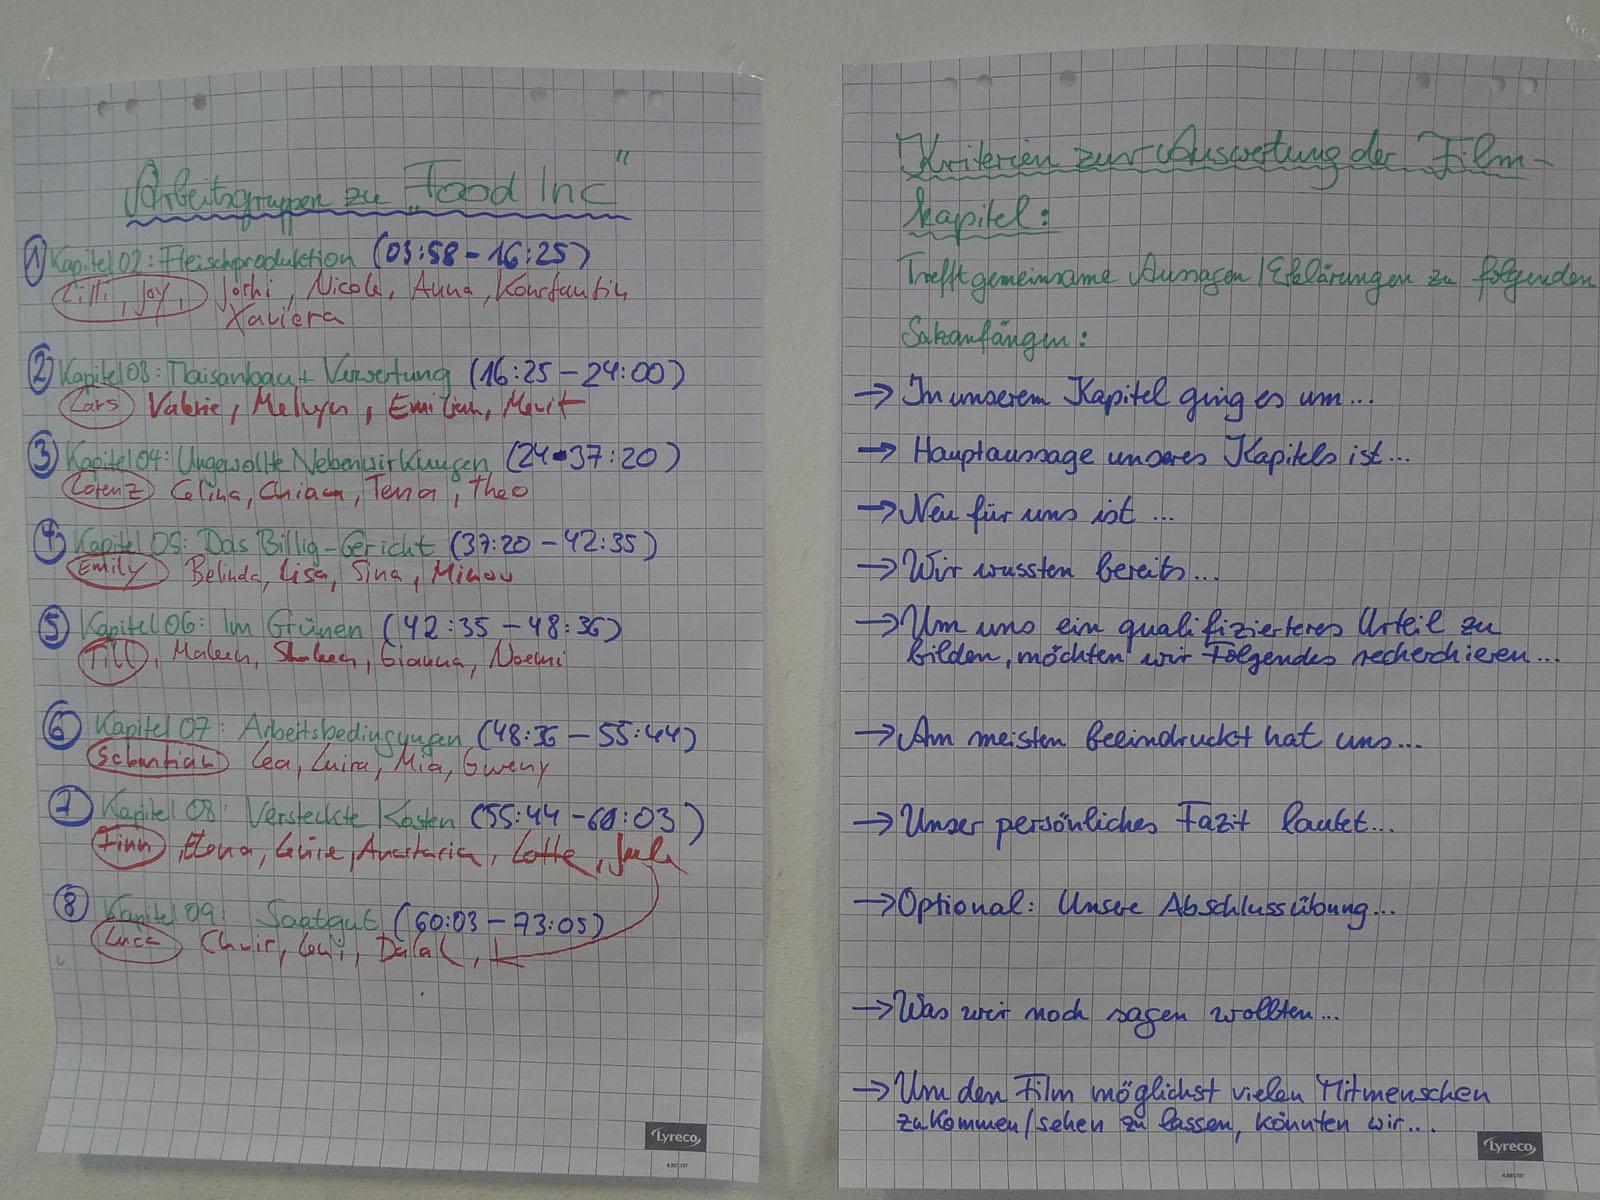 Arbeitsgruppen zu „Food Inc"
① Kapitel 02: Fleischproduktion (03:58 - 16:25)
Lilli, Joy, Joshi, Nicole, Anna, Konstantin,
Xaviera
② Kapitel 03: Maisanbau + Verwertung (16:25 - 24:00)
Lars Valerie, Melvyn, Emilian, Merit
③ Kapitel 04: Ungewollte Nebenwirkungen (24-37:20)
Lorenz Celina, Chiara, Tessa, Theo
④ Kapitel 05: Das Billig-Gericht (37:20 - 42:35)
Emily Belinda, Lisa, Sina, Minou
⑤ Kapitel 06: Im Grünen (42:35 - 48:36)
Till, Gianna, Noemi
⑥ Kapitel 07: Arbeitsbedingungen (48:36 - 55:44)
Sebastian Lea, Luisa, Mia, Gweny
⑦ Kapitel 08: Versteckte Kosten (55:44 - 60:03)
Finn, Elena, Anastasia, Lotte,
⑧ Kapitel 09: Saatgut (60:03 - 73:05)
Luca Dalal,
Lyreco
Kriterien zur Auswertung der Film-
kapitel:
Trefft gemeinsame Aussagen/Erklärungen zu folgenden
Satzanfängen:
→ In unserem Kapitel ging es um...
→ Hauptaussage unseres Kapitels ist...
→ Neu für uns ist ...
→ Wir wussten bereits...
→ Um uns ein qualifizierteres Urteil zu
bilden, möchten wir Folgendes recherchieren...
→ Am meisten beeindruckt hat uns...
→ Unser persönliches Fazit lautet...
→ Optional: Unsere Abschlussübung...
→ Was wir noch sagen wollten...
→ Um den Film möglichst vielen Mitmenschen
zukommen/sehen zu lassen, könnten wir...
Lyreco